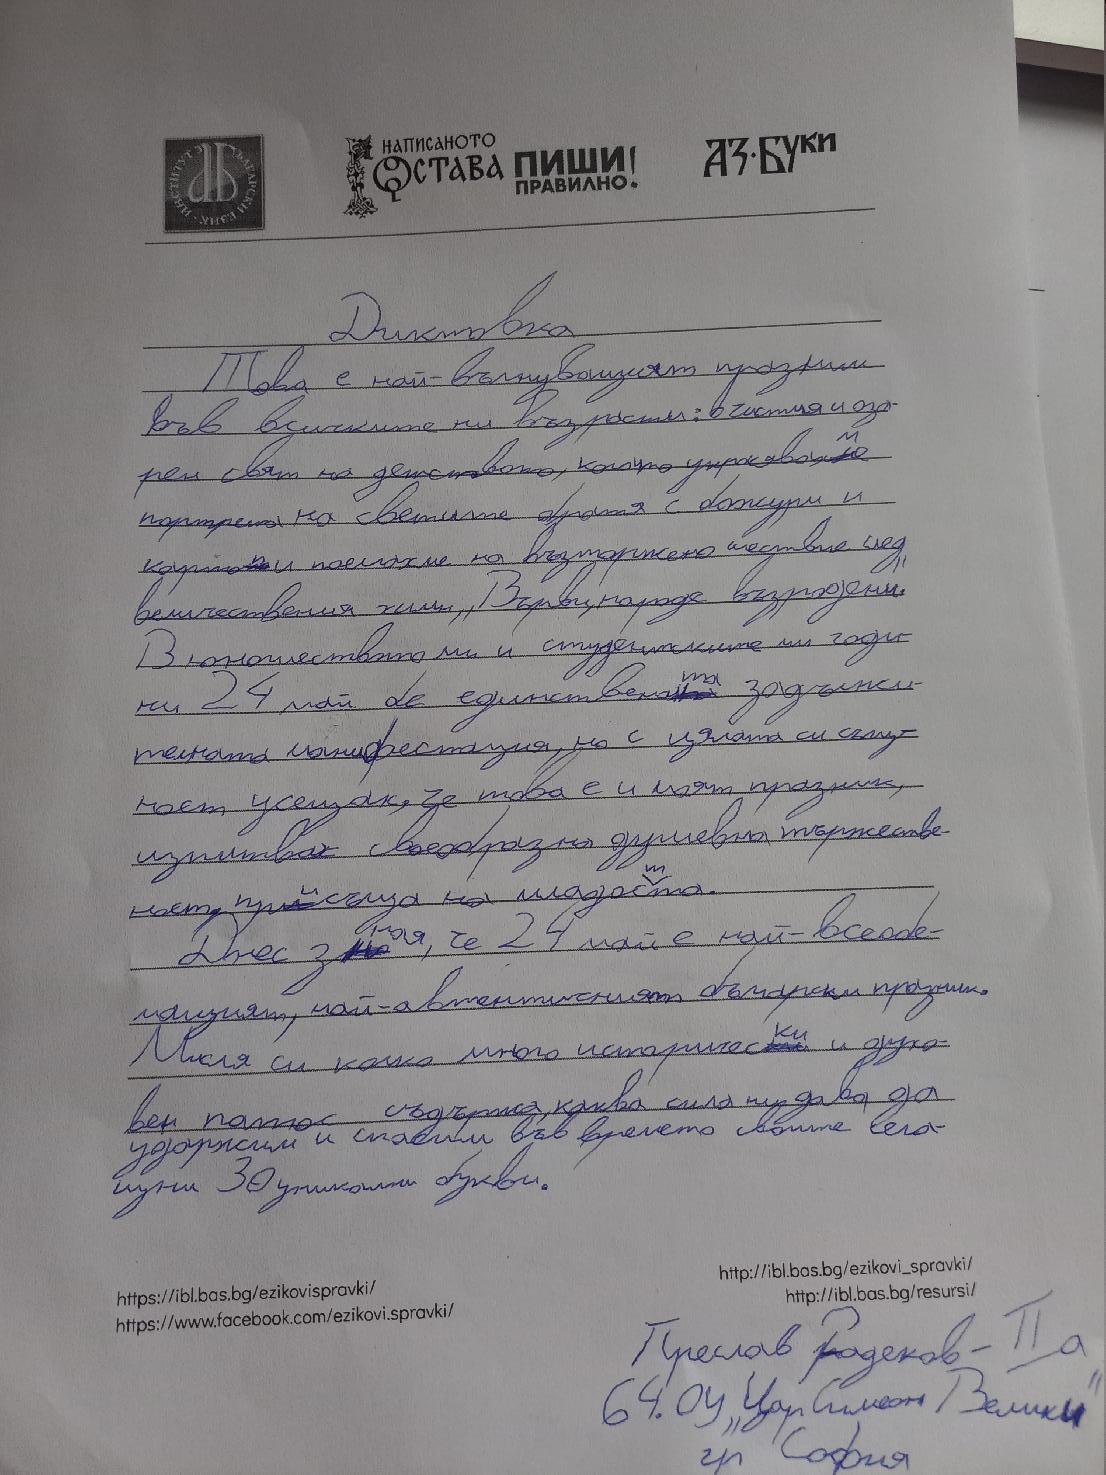 ИНСТИТУТ ЗА БЪЛГАРСКИ ЕЗИК
НАПИСАНОТО
ОСТАВА
ПИШИ
ПРАВИЛНО!
АЗ·БУКИ
Диктовка
Това е най-вълнуващият празник
във всичките ни възрасти: в чистия и оза-
рен свят на детството, когато украсявахме
портрета на светите братя с божури и
и поемахме на възторжено шествие след
величествения химн „Върви, народе възродени“.
В юношеството ми и студентските ми годи-
ни 24 май бе единствената задължи-
телната манифестация, но с цялата си същ-
ност усещах, че това е и моят празник,
изпитвах своеобразна душевна тържестве-
ност, присъща на младостта.
Днес зная, че 24 май е най-всеобе-
мащият, най-автентичният български празник.
Мисля си колко много исторически и духо-
вен патос съдържа, каква сила ни дава да
удържим и спасим във времето своите бле-
щуни 30 уникални букви.
https://ibl.bas.bg/ezikovispravki/
https://www.facebook.com/ezikovi.spravki/
http://ibl.bas.bg/ezikovi_spravki/
http://ibl.bas.bg/resursi/
Преслав Радеков - II а
64. ОУ „Цар Симеон Велики“
гр София